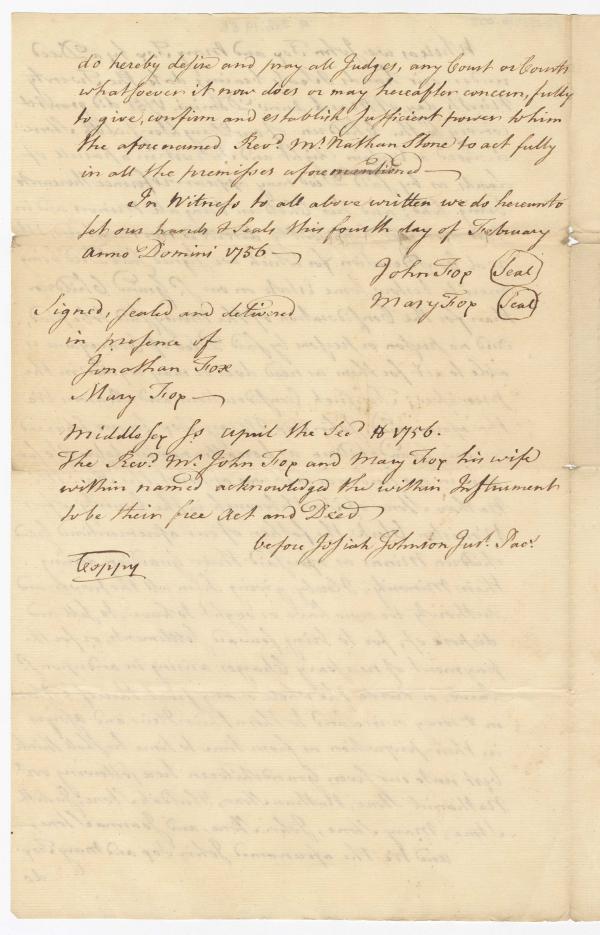 do hereby desire and pray all Judges, any Court or Courts
whatsoever it now does or may hereafter concern, fully
to give, confirm and establish sufficient power to him
the aforenamed Revd. Mr. Nathan Stone to act fully
in all the premisses aforementioned
In Witness to all above written we do hereunto
set our hands & Seals this fourth day of February
Anno Domini 1756
John Fox (Seal)
Mary Fox (Seal)
Signed, sealed and delivered
in presence of
Jonathan Fox
Mary Fox
Middlesex Ss April the 1756.
The Revd. Mr. John Fox and Mary Fox his wife
within named acknowledged the within Instrument
to be their free Act and Deed
before Josiah Johnson Jus. Pac.
Coppy